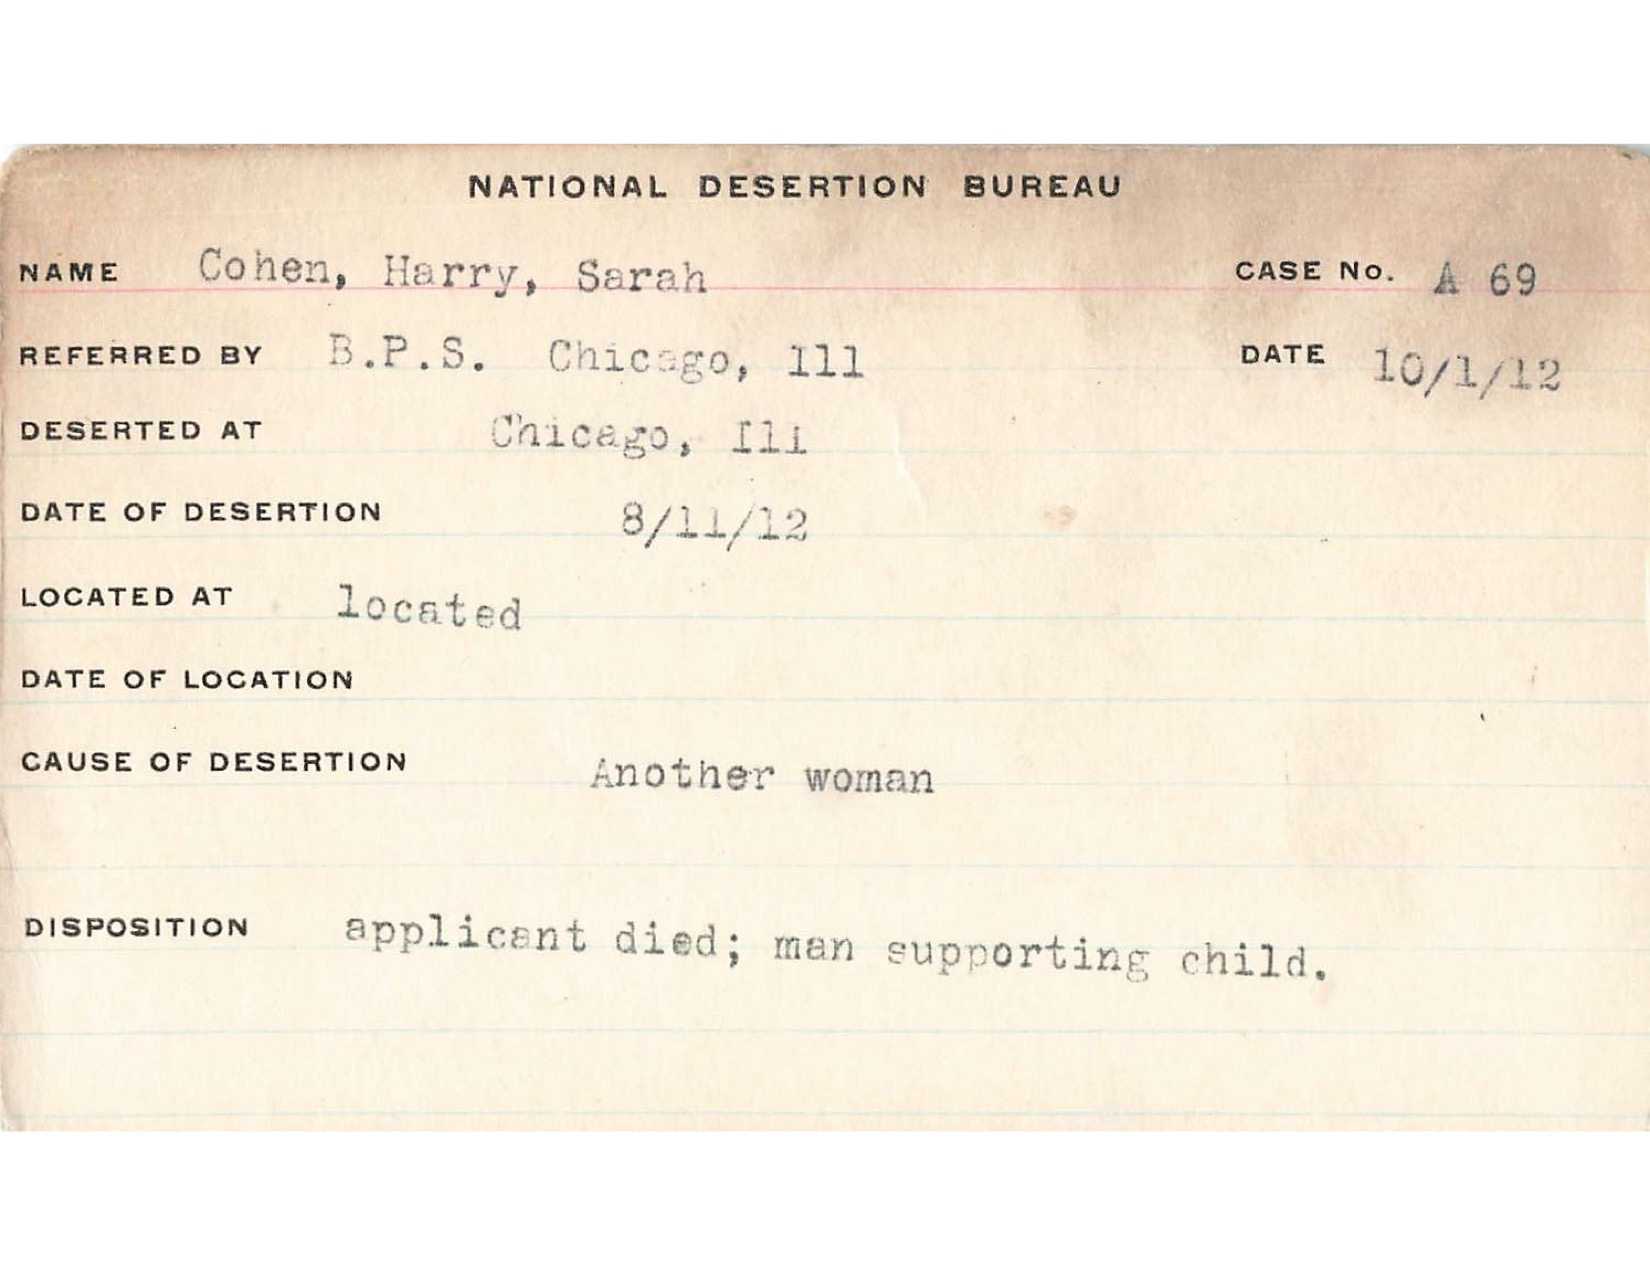 NATIONAL DESERTION BUREAU
NAME Cohen, Harry, Sarah CASE No. A 69
REFERRED BY B.P.S. Chicago, Ill DATE 10/1/12
DESERTED AT Chicago, Ill
DATE OF DESERTION 8/11/12
LOCATED AT located
DATE OF LOCATION
CAUSE OF DESERTION Another woman
DISPOSITION applicant died; man supporting child.